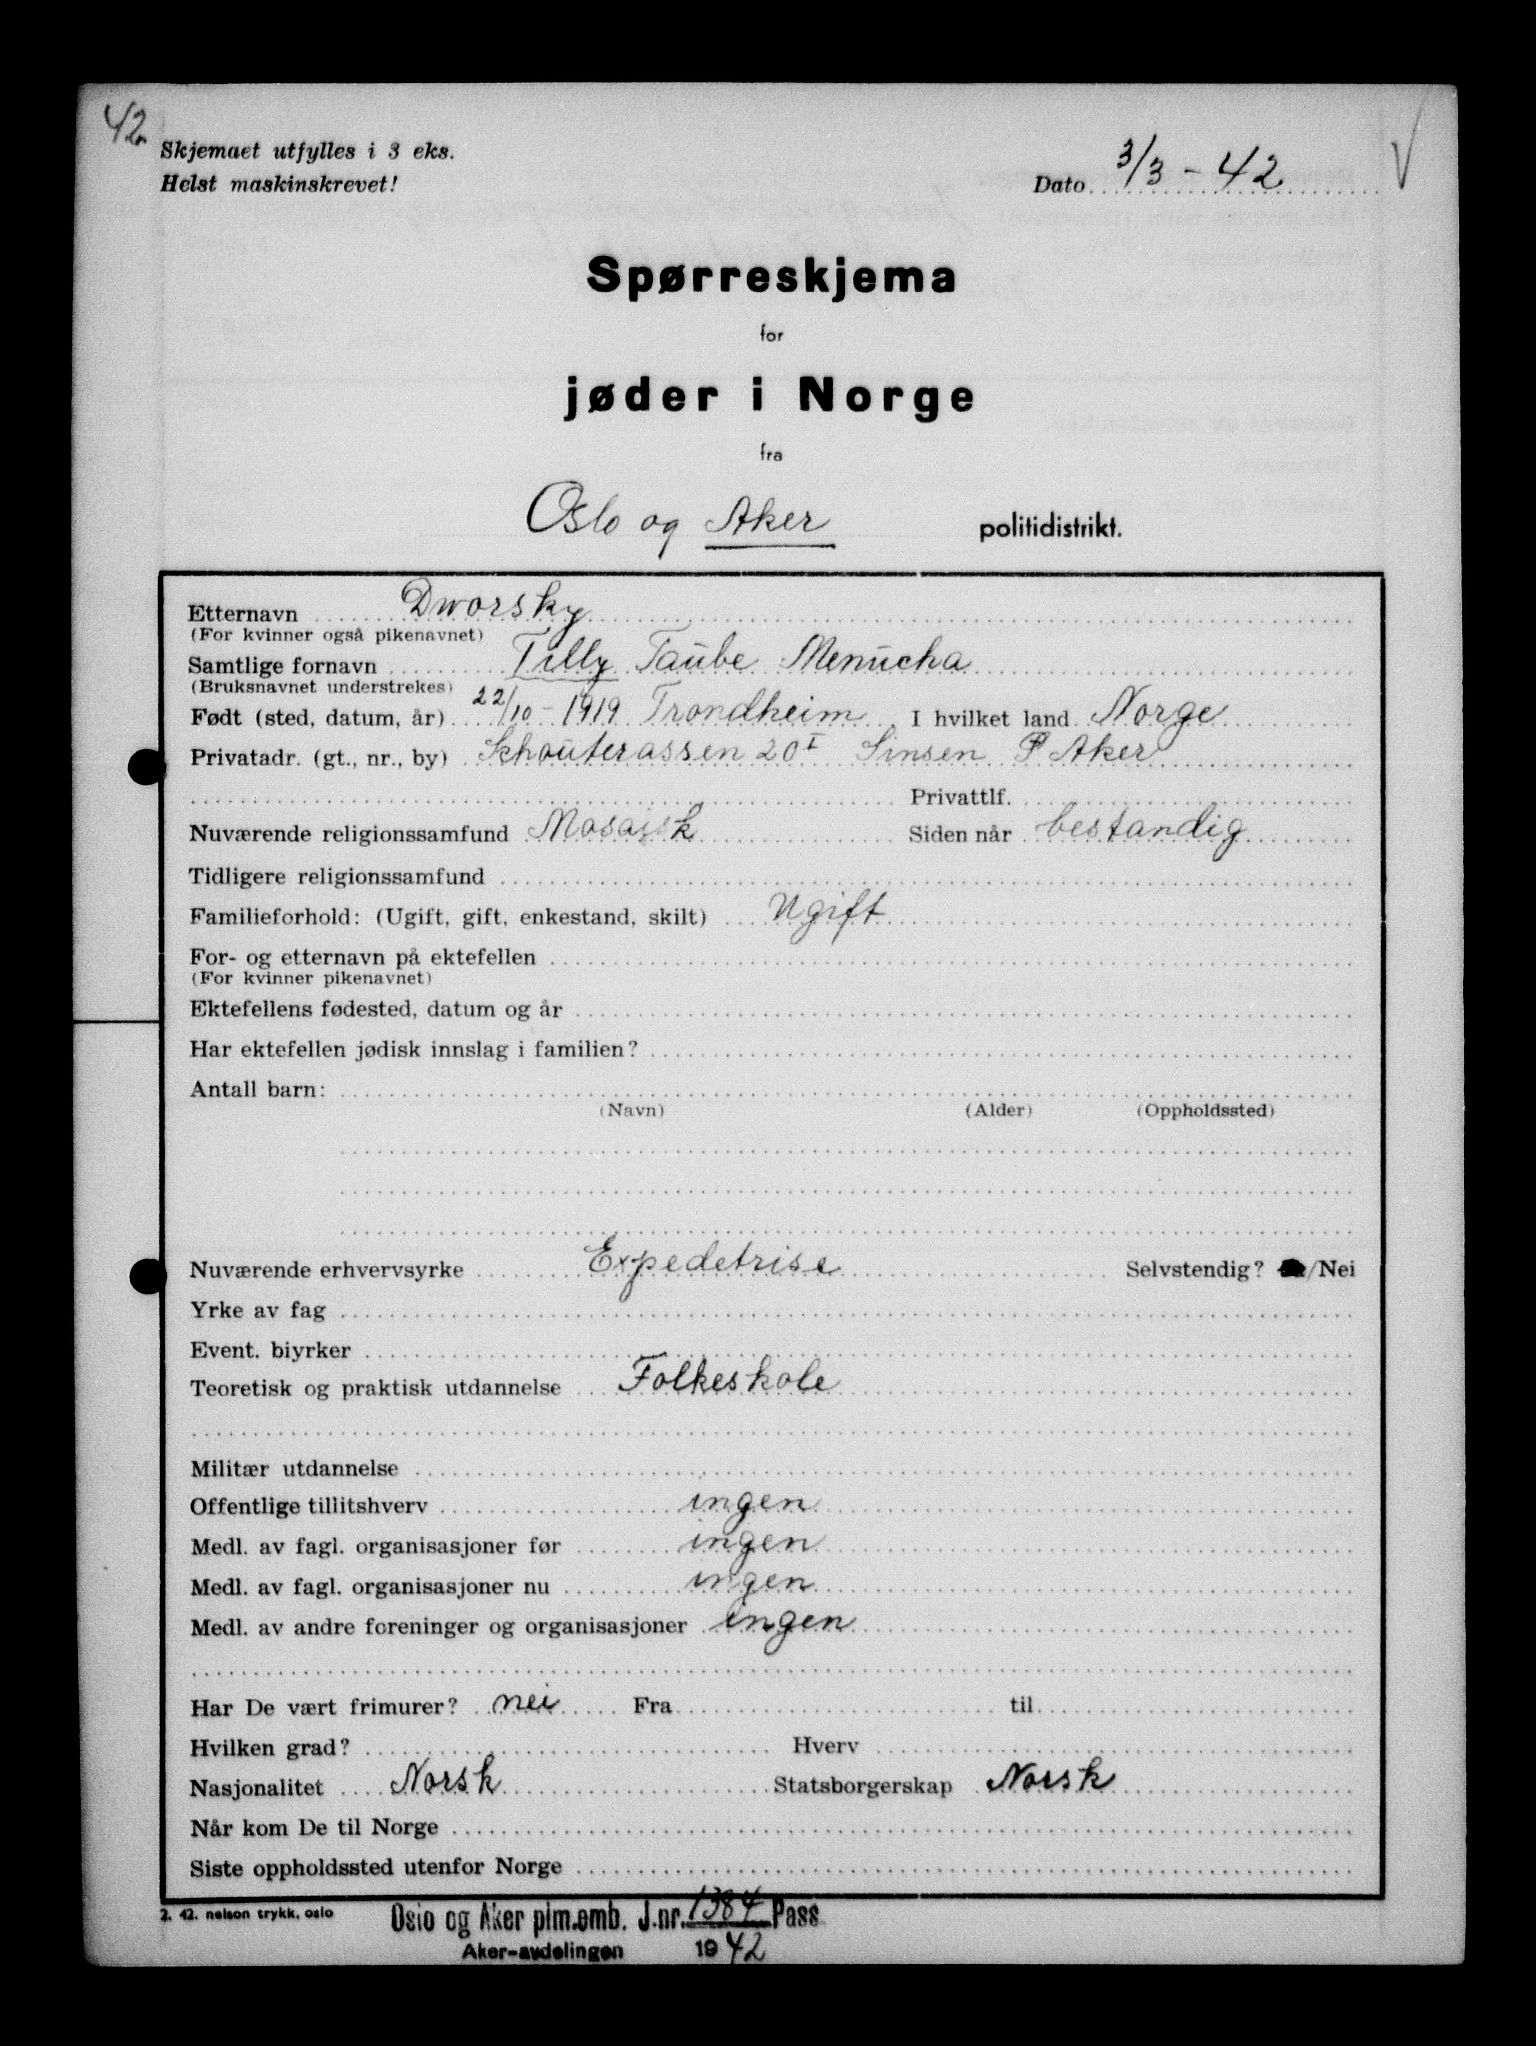 42
Skjemaet utfylles i 3 eks.
Helst maskinskrevet!
Dato 3/3 - 42
Spørreskjema
for
jøder i Norge
fra
Oslo og Aker politidistrikt.
Etternavn Dworsky
(For kvinner også pikenavnet)
Samtlige fornavn Tilly Taube Menucha
(Bruksnavnet understrekes)
Født (sted, datum, år) 22/10 - 1919 Trondheim I hvilket land Norge
Privatadr. (gt., nr., by) Schouterassen 20 I Sinsen P Aker
Privattlf.
Nuværende religionssamfund Mosaisk Siden når bestandig
Tidligere religionssamfund
Familieforhold: (Ugift, gift, enkestand, skilt) Ugift
For- og etternavn på ektefellen
(For kvinner pikenavnet)
Ektefellens fødested, datum og år
Har ektefellen jødisk innslag i familien?
Antall barn:
(Navn) (Alder) (Oppholdssted)
Nuværende erhvervsyrke Expedetrise Selvstendig? /Nei
Yrke av fag
Event. biyrker
Teoretisk og praktisk utdannelse Folkeskole
Militær utdannelse
Offentlige tillitshverv ingen
Medl. av fagl. organisasjoner før ingen
Medl. av fagl. organisasjoner nu ingen
Medl. av andre foreninger og organisasjoner ingen
Har De vært frimurer? nei Fra til
Hvilken grad? Hverv
Nasjonalitet Norsk Statsborgerskap Norsk
Når kom De til Norge
Siste oppholdssted utenfor Norge
2. 42. nelson trykk, oslo
Oslo og Aker plm.emb. J.nr. 1384 Pass
Aker-avdelingen 1942